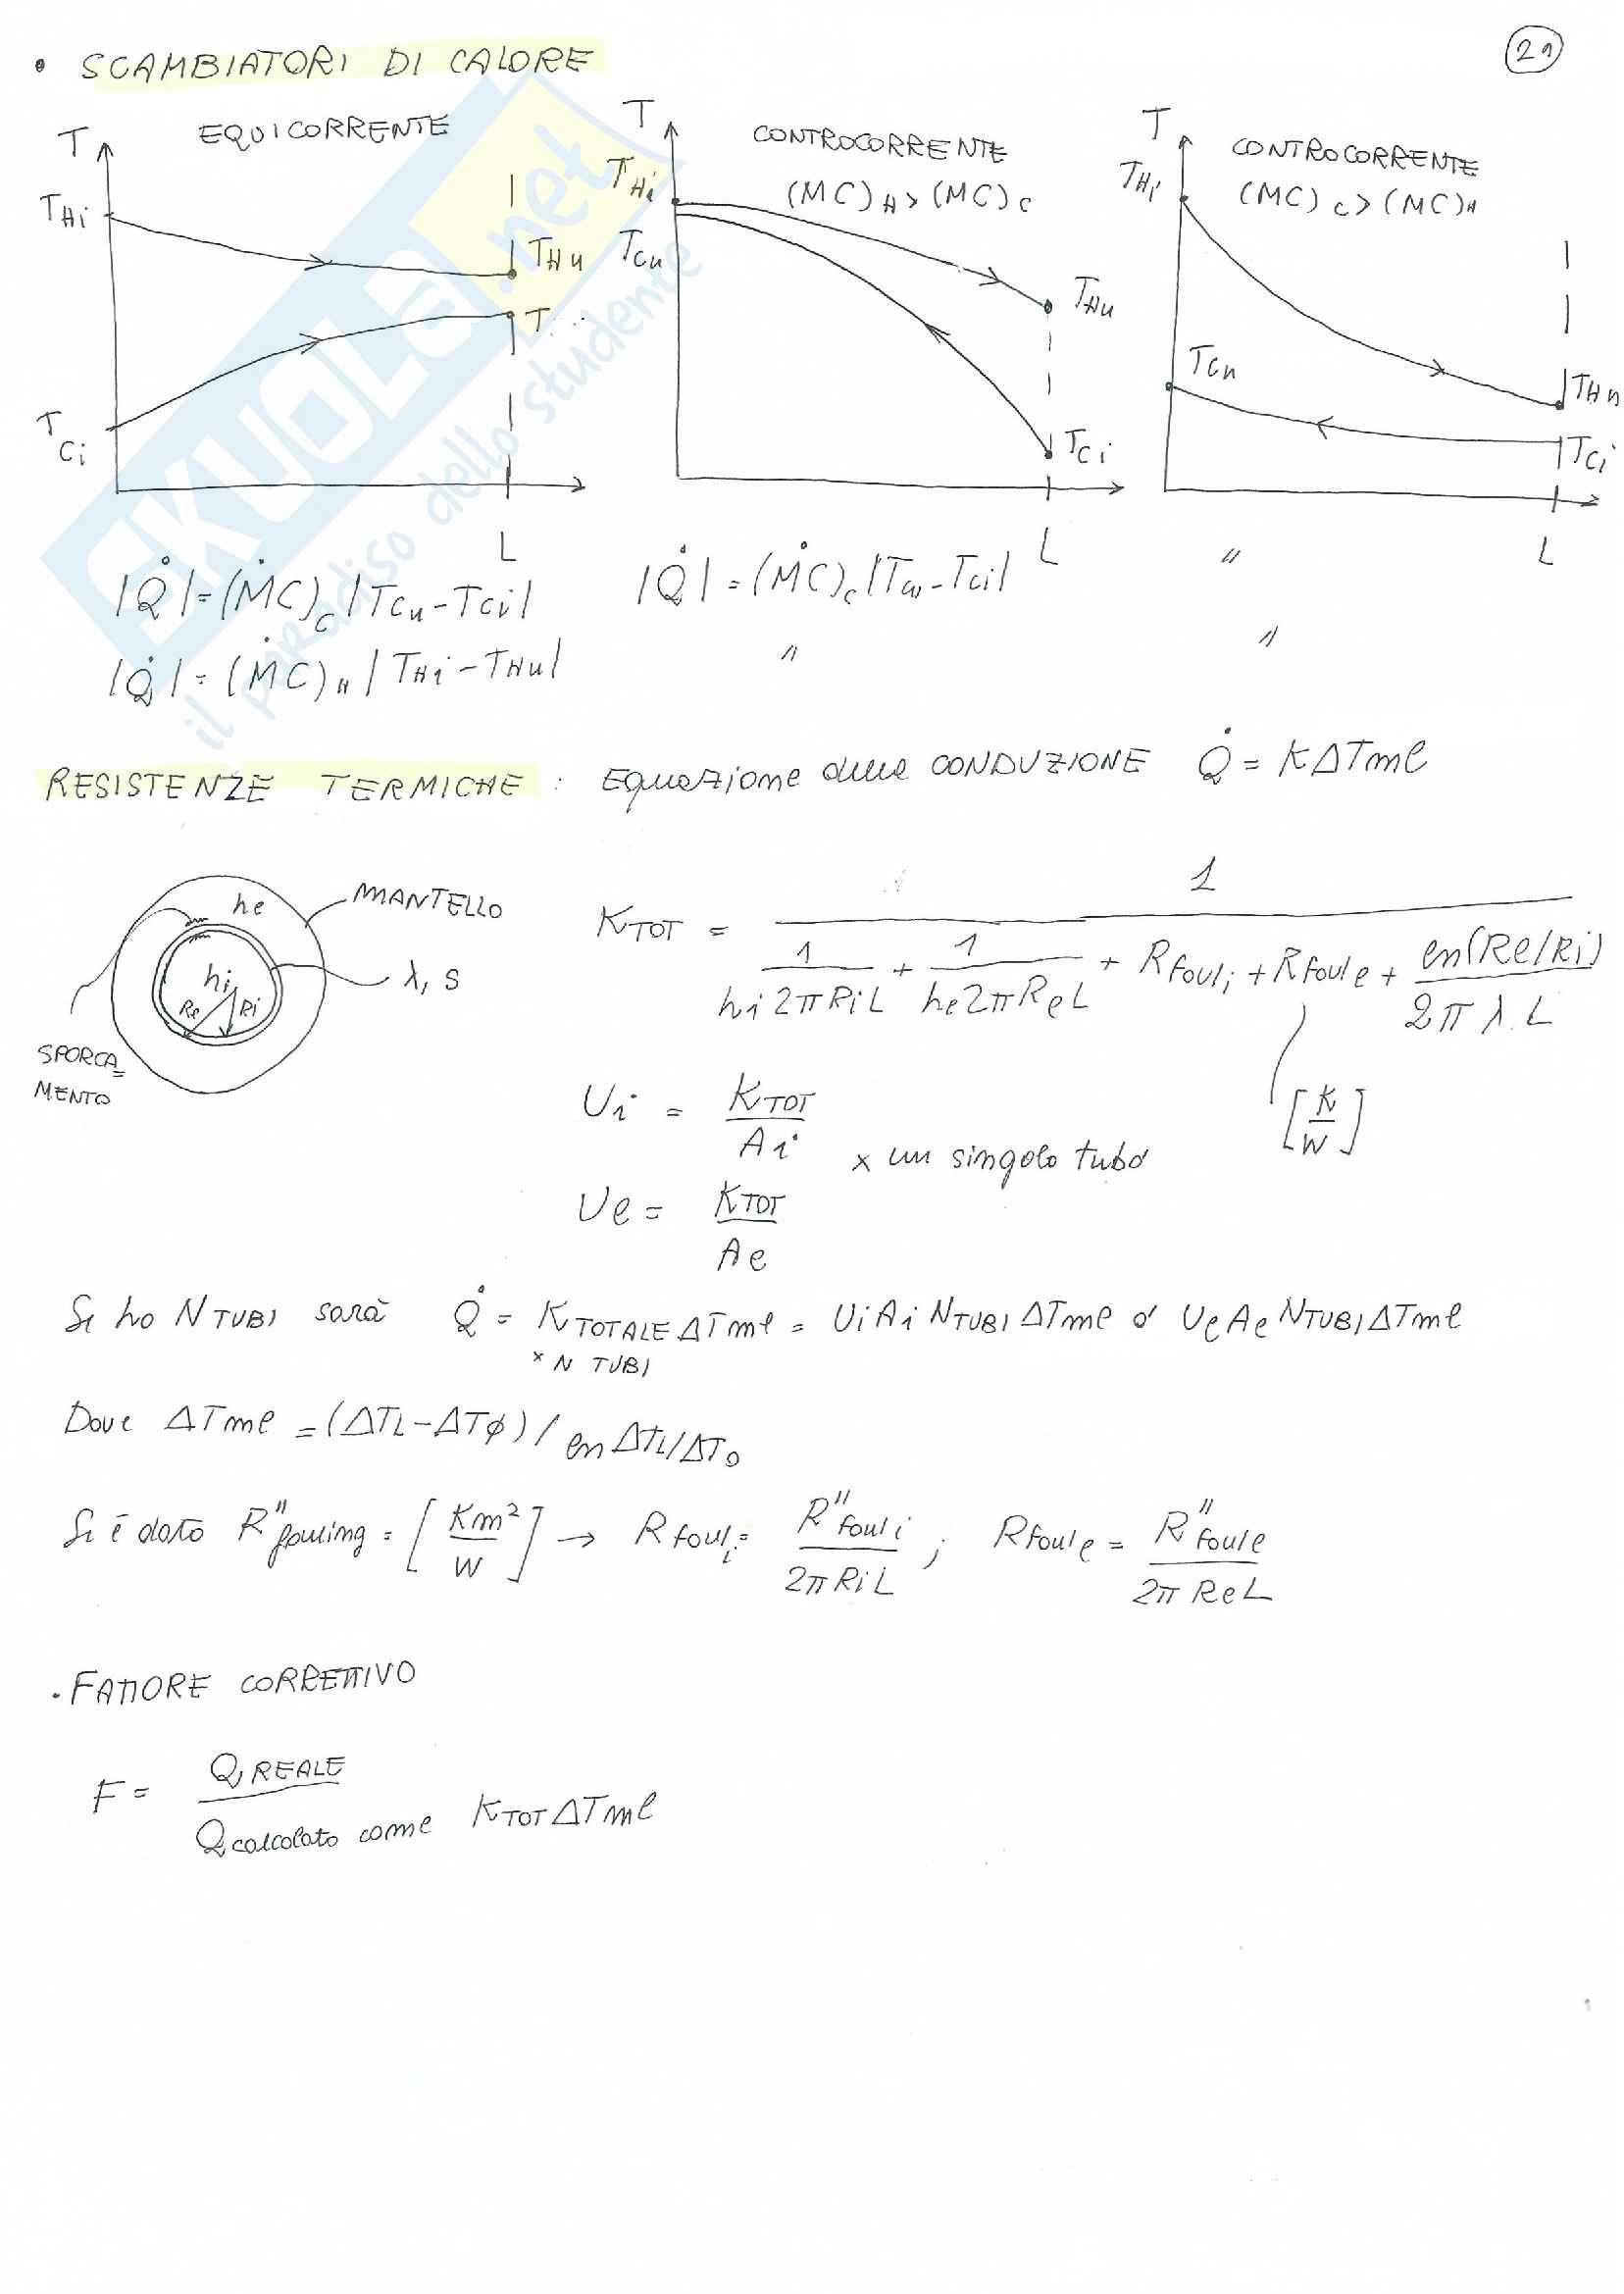 • SCAMBIATORI DI CALORE
21
T EQUICORRENTE
THi
THu
T
TCi
L
T CONTROCORRENTE
THi (MC)H > (MC)C
TCu
THu
TCi
L
T CONTROCORRENTE
THi (MC)C > (MC)H
TCu
THu
TCi
L
|Q̇| = (ṀC)C |TCu - TCi| |Q̇| = (ṀC)C |TCu - TCi| "
|Q̇| = (ṀC)H |THi - THu| " "
SKUOLA.net
il paradiso dello studente
RESISTENZE TERMICHE : Equazione della CONDUZIONE Q̇ = KΔTml
he MANTELLO
hi λ, s
Re Ri
SPORCA=
MENTO
KTOT = 1 / (1/(hi 2πRiL) + 1/(he 2πReL) + Rfouli + Rfoule + ln(Re/Ri)/(2πλ.L))
[K/W]
Ui = KTOT/Ai
x un singolo tubo
Ue = KTOT/Ae
Se ho NTUBI sarà Q̇ = KTOTALE ΔTml = UiAi NTUBI ΔTml o UeAe NTUBI ΔTml
x N TUBI
Dove ΔTml = (ΔTL - ΔTφ) / ln ΔTL/ΔT0
Se è dato R"fouling = [Km²/W] → Rfouli = R"fouli/(2πRiL) ; Rfoule = R"foule/(2πReL)
. FATTORE CORRETTIVO
F = Q̇REALE / Q̇calcolato come KTOT ΔTml